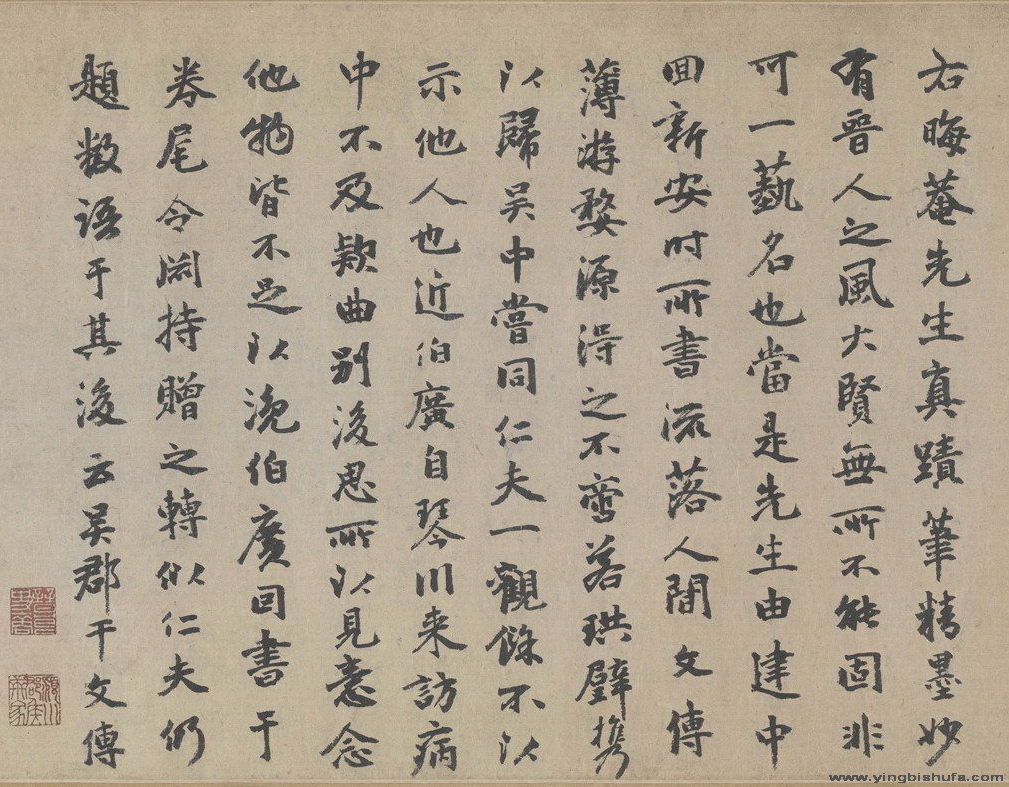 右晦菴先生真蹟筆精墨妙
有晉人之風大賢無所不能固非
可一藝名也當是先生由建中
回新安時所書流落人間文傳
薄游婺源得之不啻若珙璧攜
以歸吴中嘗同仁夫一觀餘不以
示他人也近伯廣自琴川来訪病
中不及欵曲别後思所以見意念
他物皆不足以浼伯廣回書于
卷尾令閎持贈之轉似仁夫仍
題數語于其後云吴郡干文傳
www.yingbishufa.com